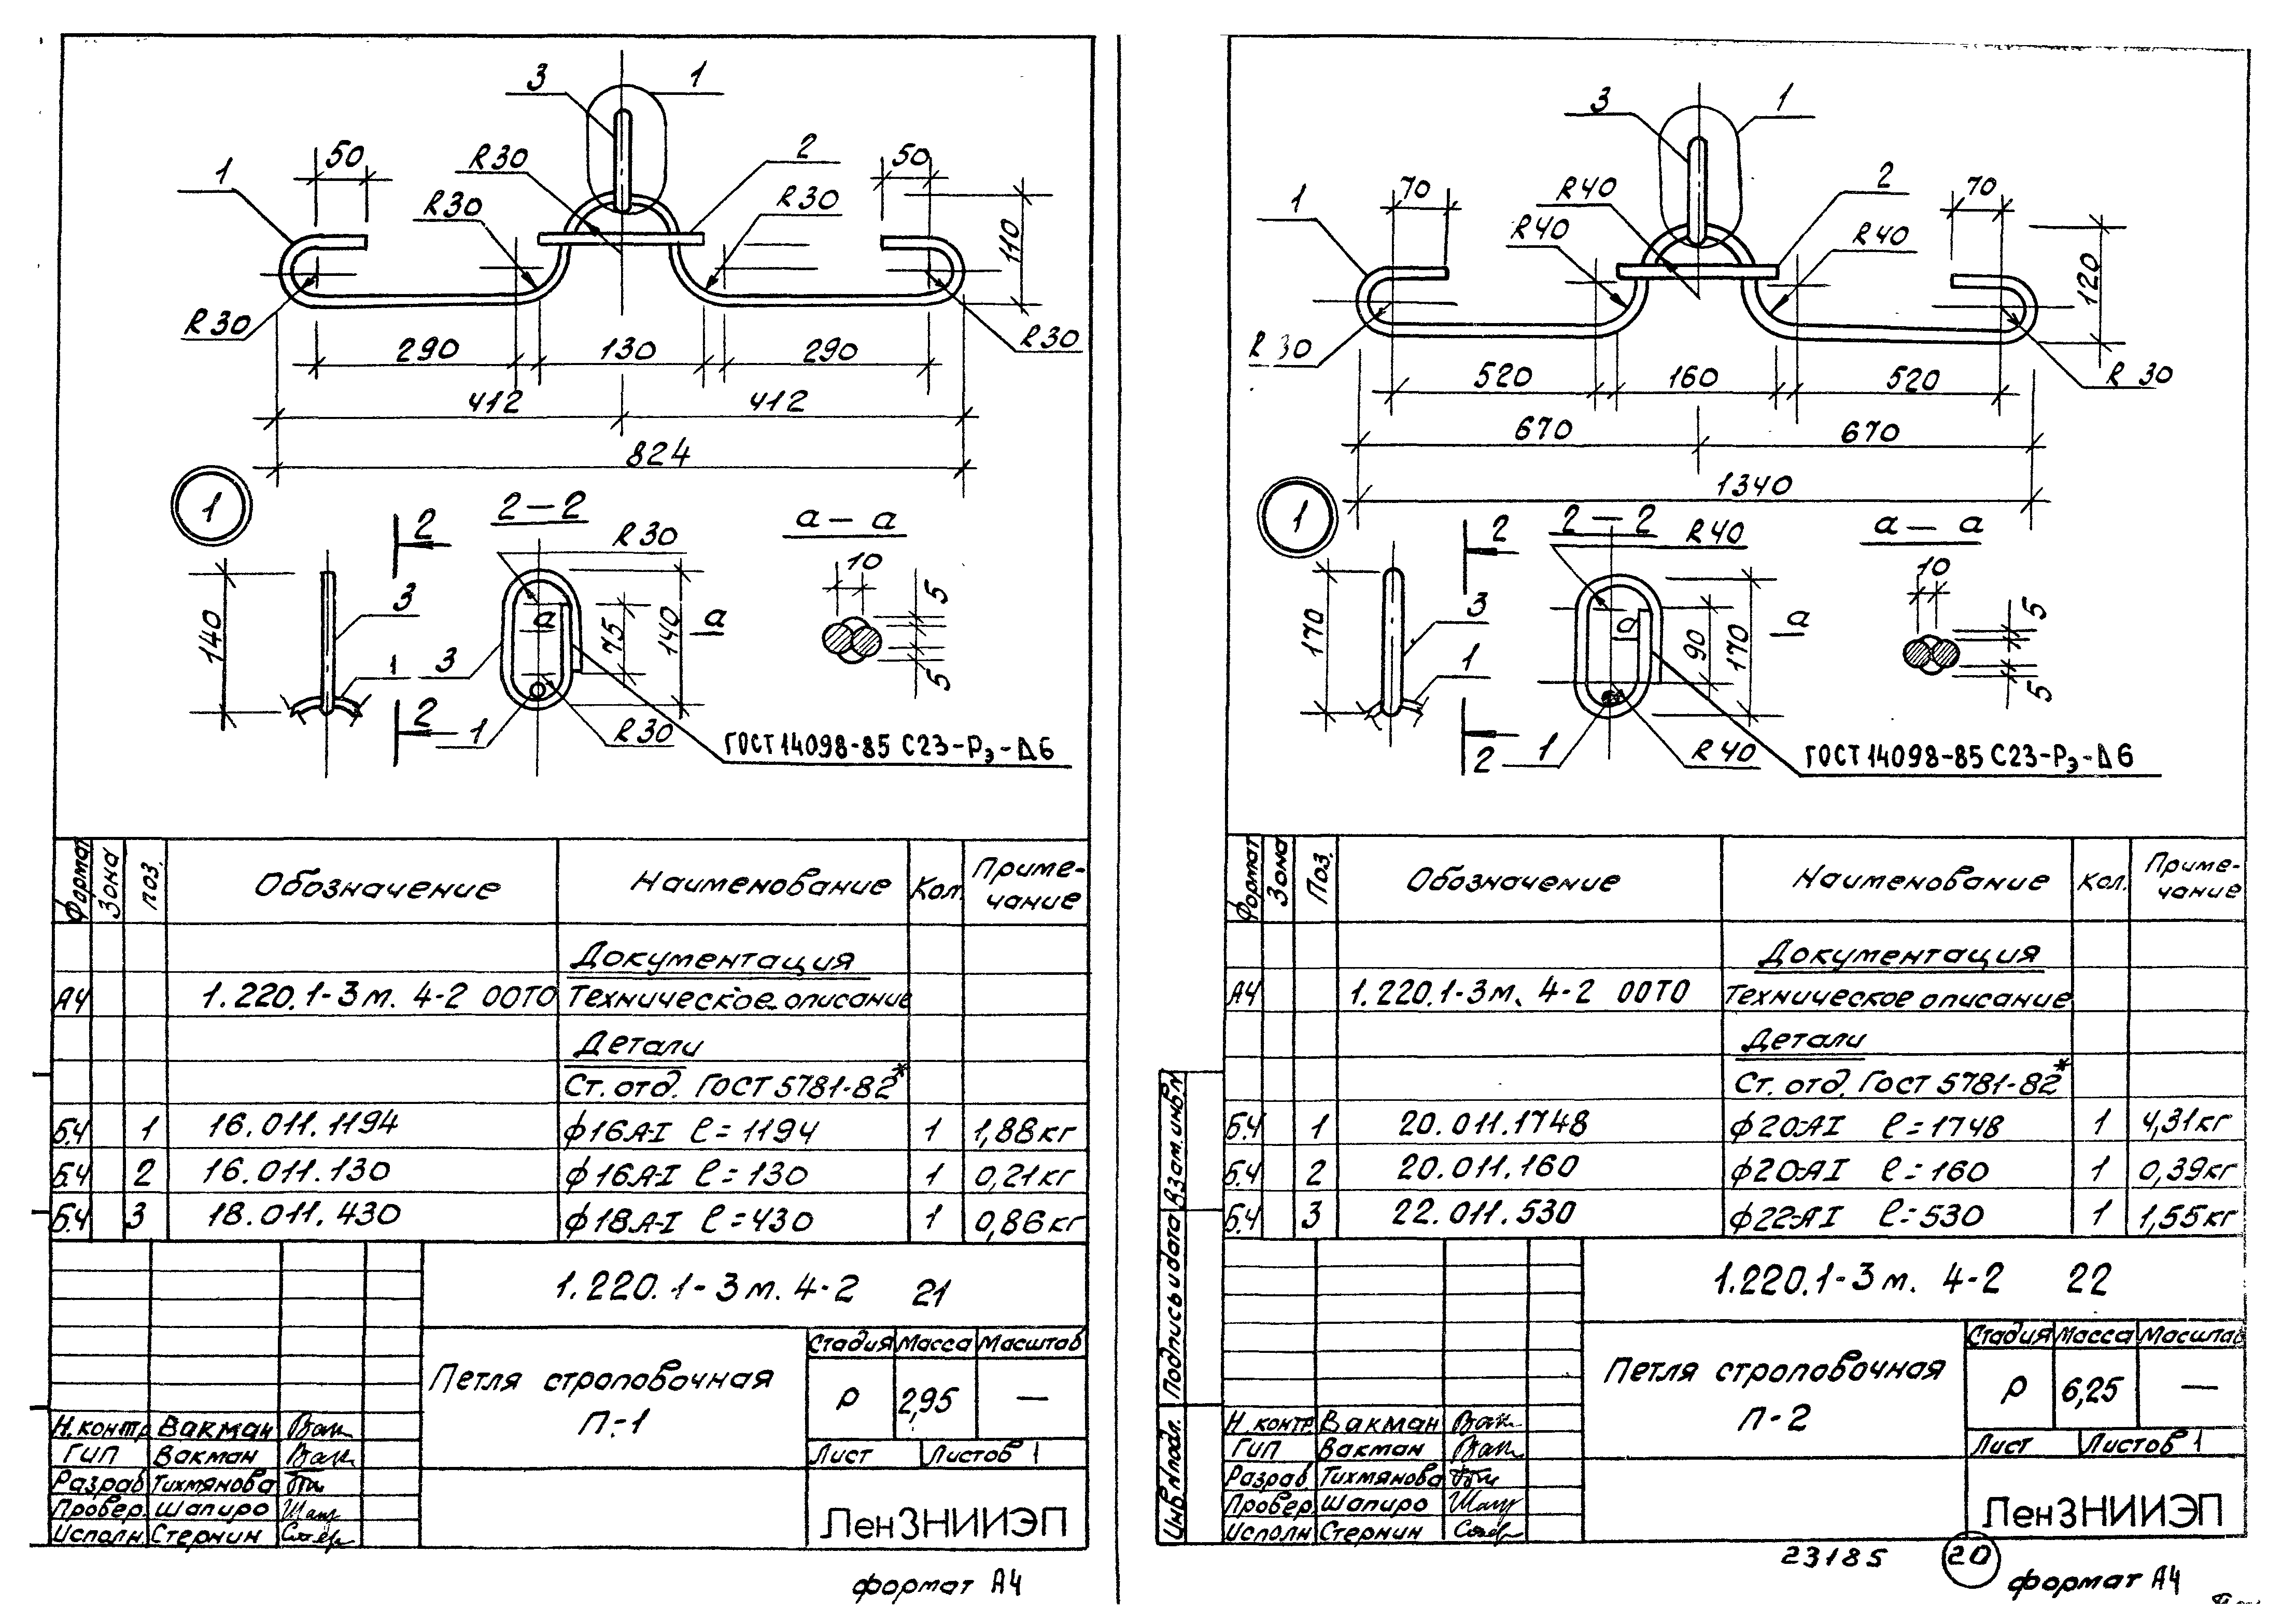 3
1
50
R30
2
50
1
R30
R30
110
R30
R30
290
130
290
412
412
824
1
2
2-2
а-а
R30
10
5
140
3
а
75
140
а
1
3
5
2
1
R30
ГОСТ 14098-85 С23-Рэ-Δ6
Формат
Зона
поз.
Обозначение
Наименование
Кол.
Приме-
чание
Документация
А4
1.220.1-3м. 4-2 00ТО
Техническое описание
Детали
Ст. отд. ГОСТ 5781-82*
Б.Ч
1
16.011.1194
ф16А-I ℓ=1194
1
1,88кг
Б.Ч
2
16.011.130
ф16А-I ℓ=130
1
0,21кг
Б.Ч
3
18.011.430
ф18А-I ℓ=430
1
0,86кг
1.220.1-3м. 4-2 21
Петля строповочная
П-1
Стадия
Масса
Масштаб
Р
2,95
—
Лист
Листов 1
Н.контр
Вакман
ГИП
Вакман
Разраб
Тихмянова
Провер.
Шапиро
Исполн.
Стернин
ЛенЗНИИЭП
формат А4
3
1
70
R40
2
70
1
R40
R40
120
R30
R30
520
160
520
670
670
1340
1
2
2-2
R40
а-а
10
5
170
3
а
90
170
а
1
5
2
1
R40
ГОСТ 14098-85 С23-Рэ-Δ6
Формат
Зона
Поз.
Обозначение
Наименование
Кол.
Приме-
чание
Документация
А4
1.220.1-3м. 4-2 00ТО
Техническое описание
Детали
Ст. отд. ГОСТ 5781-82*
Б.Ч
1
20.011.1748
ф20-АI ℓ=1748
1
4,31кг
Б.Ч
2
20.011.160
ф20-АI ℓ=160
1
0,39кг
Б.Ч
3
22.011.530
ф22-АI ℓ=530
1
1,55кг
Взам.инв.N
Подпись и дата
Инв.N подл.
1.220.1-3м. 4-2 22
Петля строповочная
П-2
Стадия
Масса
Масштаб
Р
6,25
—
Лист
Листов 1
Н.контр.
Вакман
ГИП
Вакман
Разраб
Тихмянова
Провер.
Шапиро
Исполн
Стернин
ЛенЗНИИЭП
23185
20
формат А4